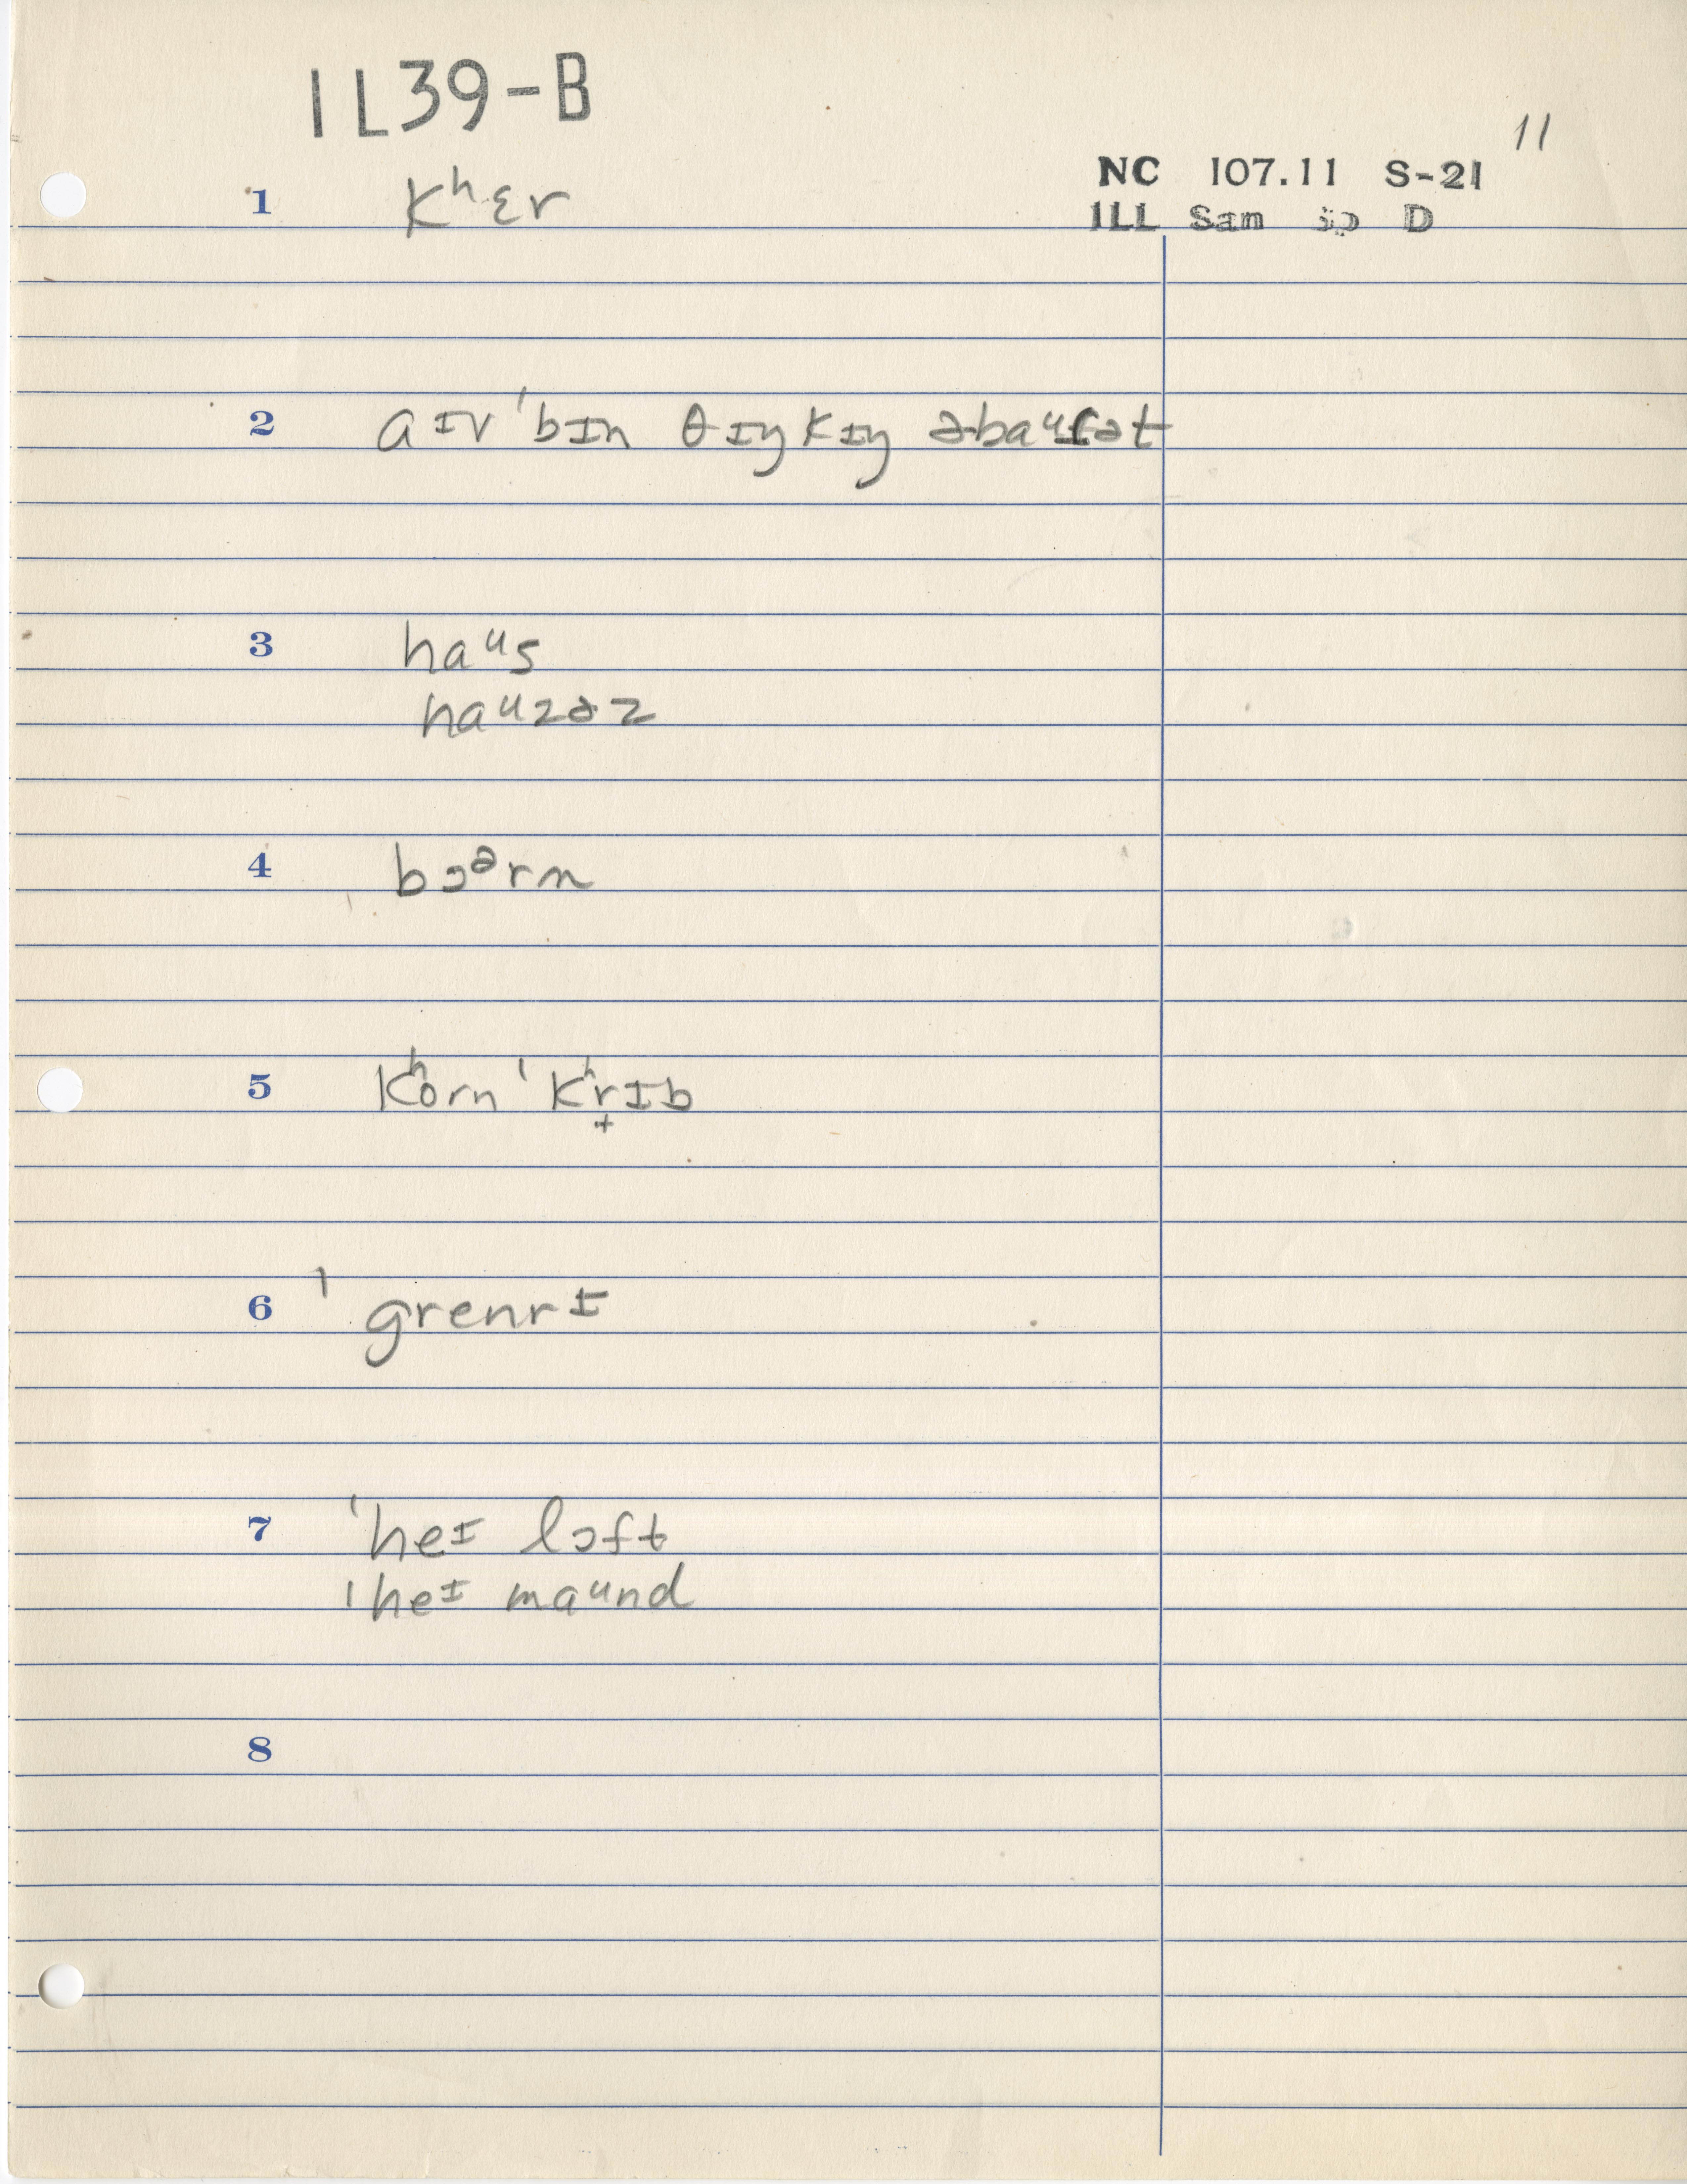 IL39-B
11
NC 107.11 S-21
ILL Sam D
1 kʰɛr
2 aɪv ˈbɪn θɪŋkɪŋ əbaᵘɾət
3 haᵘs
haᵘzəz
4 bɔᵊrn
5 kʰorn ˈkʰr̟ɪb
6 ˈgrenrɪ
7 ˈheᶦ lɔft
ˈheᶦ maᵘnd
8